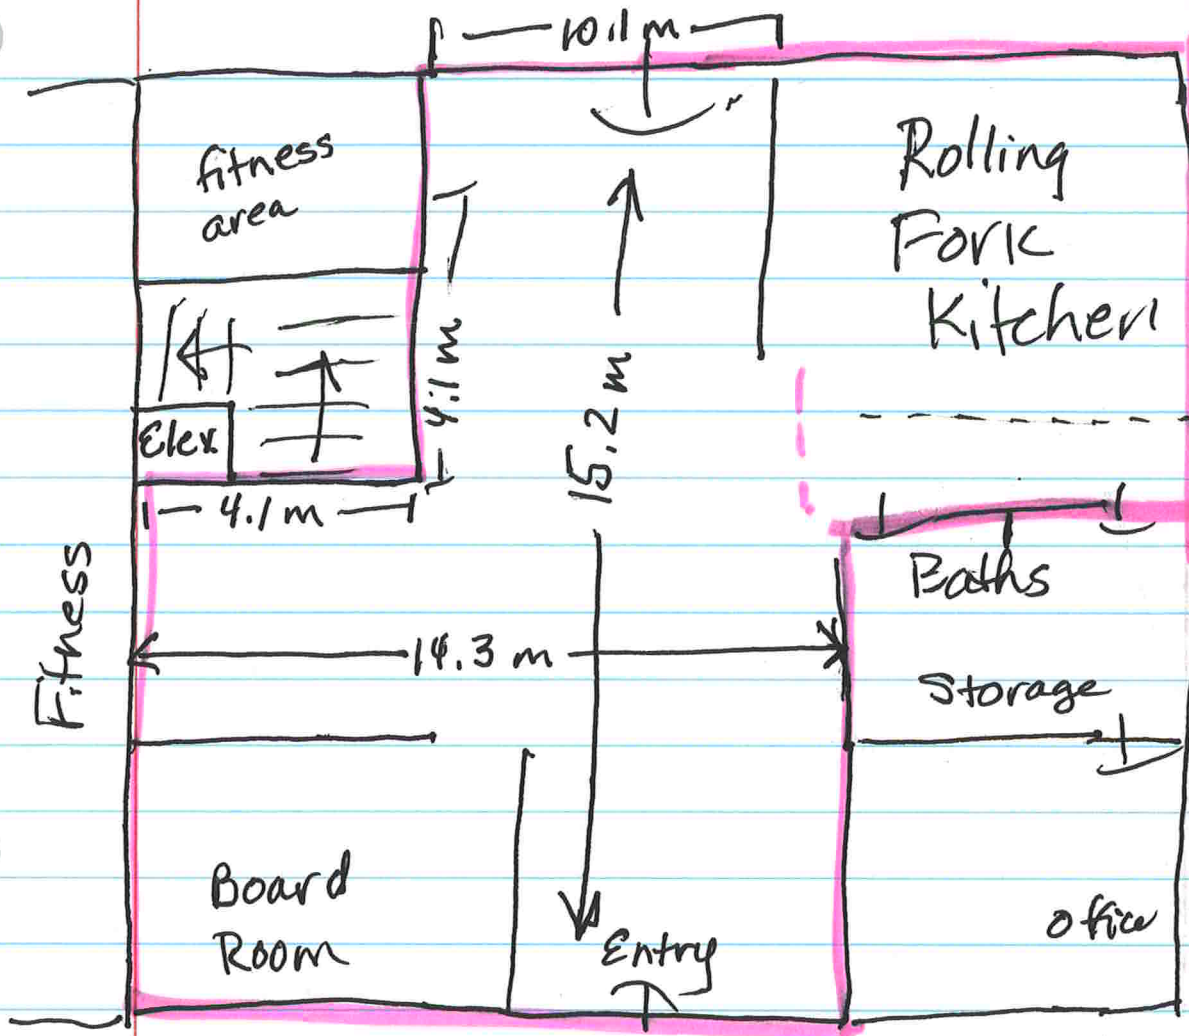 10.1 m
fitness
area
Rolling
Fork
Kitchen
4.1 m
15.2 m
Elev.
4.1 m
Baths
Fitness
14.3 m
Storage
Board
Room
Entry
office